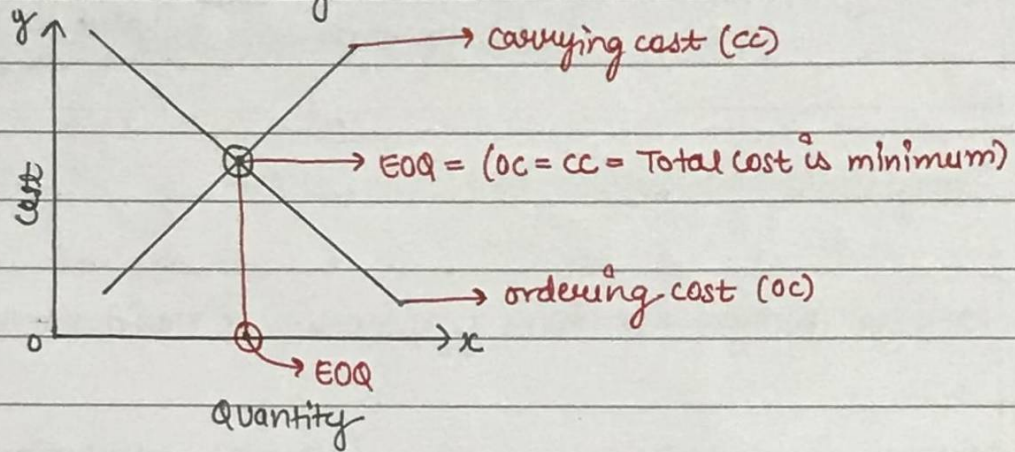 y
carrying cost (CC)
EOQ = (OC = CC = Total cost is minimum)
cost
ordering cost (OC)
0
x
EOQ
Quantity